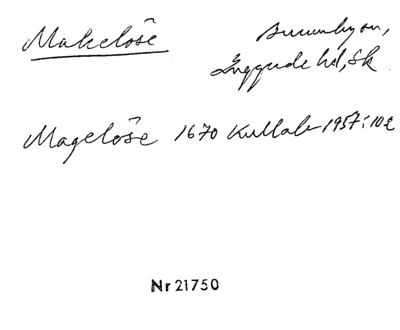 Makelöse
Brunnbyon,
Luggude hd, Sk.
Magelöse 1670 Kullab 1957:10
Nr 21750